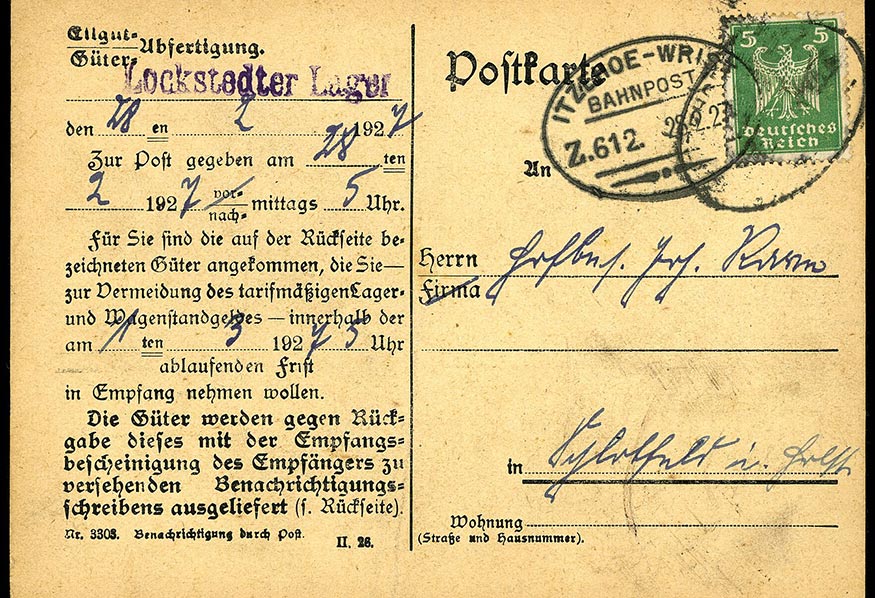 Eilgut-
Güter-
Abfertigung.
Lockstedter Lager
den 28 en 2 1927
Zur Post gegeben am 28 ten
2 1927 vor-
nach- mittags 5 Uhr.
Für Sie sind die auf der Rückseite be-
zeichneten Güter angekommen, die Sie —
zur Vermeidung des tarifmäßigen Lager-
und Wagenstandgeldes — innerhalb der
am 1 ten 3 1927 5 Uhr
ablaufenden Frist
in Empfang nehmen wollen.
Die Güter werden gegen Rück-
gabe dieses mit der Empfangs-
bescheinigung des Empfängers zu
versehenden Benachrichtigungs-
schreibens ausgeliefert (s. Rückseite).
Nr. 3303. Benachrichtigung durch Post.
II. 26.
Postkarte
ITZEHOE-WRIST
BAHNPOST
Z.612 28.2.27
5 5
Deutsches
Reich
An
Herrn Hofbes. Joh.
Firma
in Schlotfeld i. Holst
Wohnung
(Straße und Hausnummer).